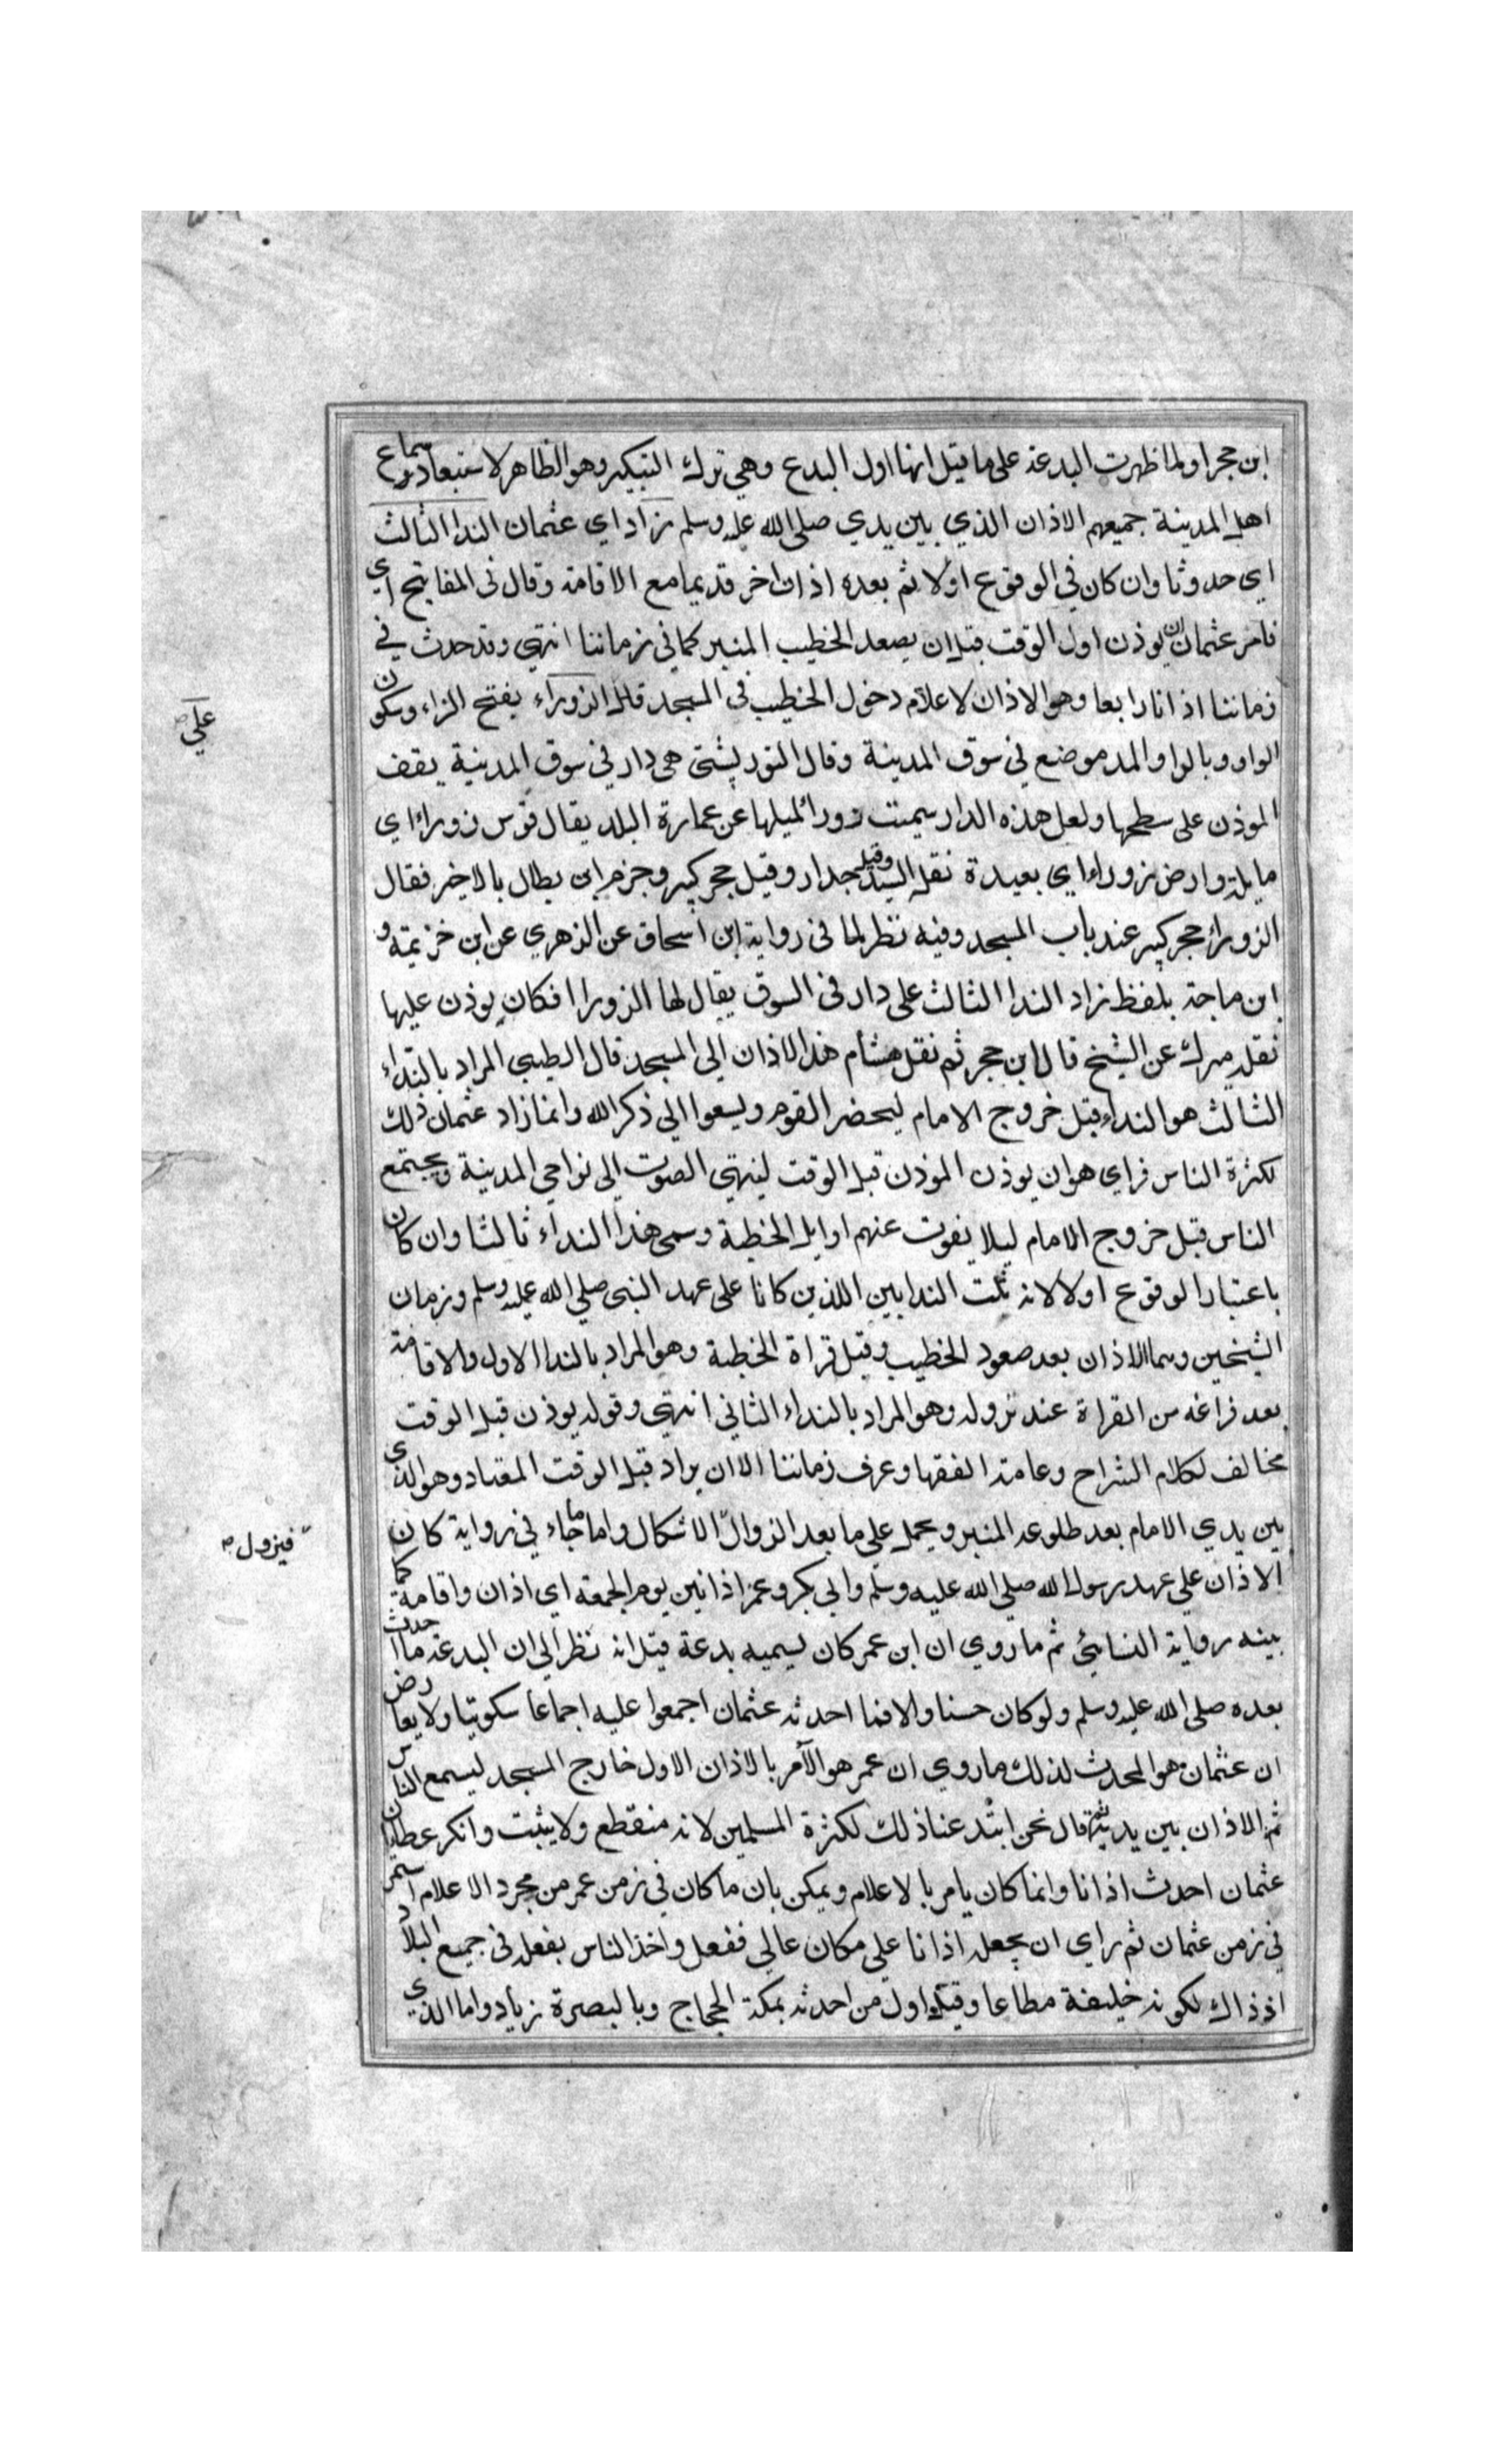 ابن حجر او لما ظهرت البدعة على ما قيل انها اول البدع وهي ترك التبكير وهو الظاهر لاستبعاد سماع
اهل المدينة جميعهم الاذان الذي بين يدي صلى الله عليه وسلم زاد اي عثمان الندا الثالث
اي حدوثا وان كان في الوقوع اولا ثم بعده اذان اخر قديما مع الاقامة وقال في المفاتيح اي
فامر عثمان ان يوذن اول الوقت قبل ان يصعد الخطيب المنبر كما في زماننا انتهى وقد حدث في
زماننا اذانا رابعا وهو الاذان لاعلام دخول الخطيب في المسجد قال الزوراء بفتح الزاء وسكون
الواو وبالواو المد موضع في سوق المدينة وقال التوربشتي هي دار في سوق المدينة يقف
الموذن على سطحها ولعل هذه الدار سميت زورا لميلها عن عمارة البلد يقال قوس زوراء اي
مايلة وارض زوراء اي بعيدة نقله السيد وقيل جدار وقيل حجر كبير وجزم ابن بطال بالاخير فقال
الزوراء حجر كبير عند باب المسجد وفيه نظر لما في رواية ابن اسحاق عن الزهري عن ابن خزيمة و
ابن ماجة بلفظ زاد الندا الثالث على دار في السوق يقال لها الزورا فكان يوذن عليها
نقله ميرك عن الشيخ قال ابن حجر ثم نقل هشام هذا الاذان الى المسجد قال الطيبي المراد بالنداء
الثالث هو النداء قبل خروج الامام ليحضر القوم ويسعوا الى ذكر الله وانما زاد عثمان ذلك
لكثرة الناس فراي هو ان يوذن الموذن قبل الوقت لينتهي الصوت الى نواحي المدينة ويجتمع
الناس قبل خروج الامام ليلا يفوت عنهم اوايل الخطبة وسمى هذا النداء ثالثا وان كان
باعتبار الوقوع اولا لانه ثلث الندايين اللذين كانا على عهد النبي صلى الله عليه وسلم وزمان
الشيخين وهما الاذان بعد صعود الخطيب وقبل قراة الخطبة وهو المراد بالندا الاول والاقامة
بعد فراغه من القراة عند نزوله وهو المراد بالنداء الثاني انتهى وقوله يوذن قبل الوقت
مخالف لكلام الشراح وعامة الفقها وعرف زماننا الا ان يراد قبل الوقت المعتاد وهو الذي
بين يدي الامام بعد طلوعه المنبر ويحمل على ما بعد الزوال الاشكال واما ما جاء في رواية كان
الاذان على عهد رسول الله صلى الله عليه وسلم وابي بكر وعمر اذانين يوم الجمعة اي اذان واقامة كما
بينه رواية النسائي ثم ما روي ان ابن عمر كان يسميه بدعة قيل انه نظر الى ان البدعة ما احدث
بعده صلى الله عليه وسلم ولو كان حسنا والا فما احدثه عثمان اجمعوا عليه اجماعا سكوتيا ولا يعارض
ان عثمان هو المحدث لذلك ما روي ان عمر هو الآمر بالاذان الاول خارج المسجد ليسمع الناس
ثم الاذان بين يديه ثم قال نحن ابتدعنا ذلك لكثرة المسلمين لانه منقطع ولا يثبت وانكر عطا ان
عثمان احدث اذانا وانما كان يامر بالاعلام ويمكن بان ما كان في زمن عمر من مجرد الاعلام استمر
في زمن عثمان ثم راي ان يجعله اذانا على مكان عالي ففعل واخذ الناس بفعله في جميع البلاد
اذ ذاك لكونه خليفة مطاعا وقيل اول من احدثه بمكة الحجاج وبالبصرة زياد واما الذي
على
فيزول